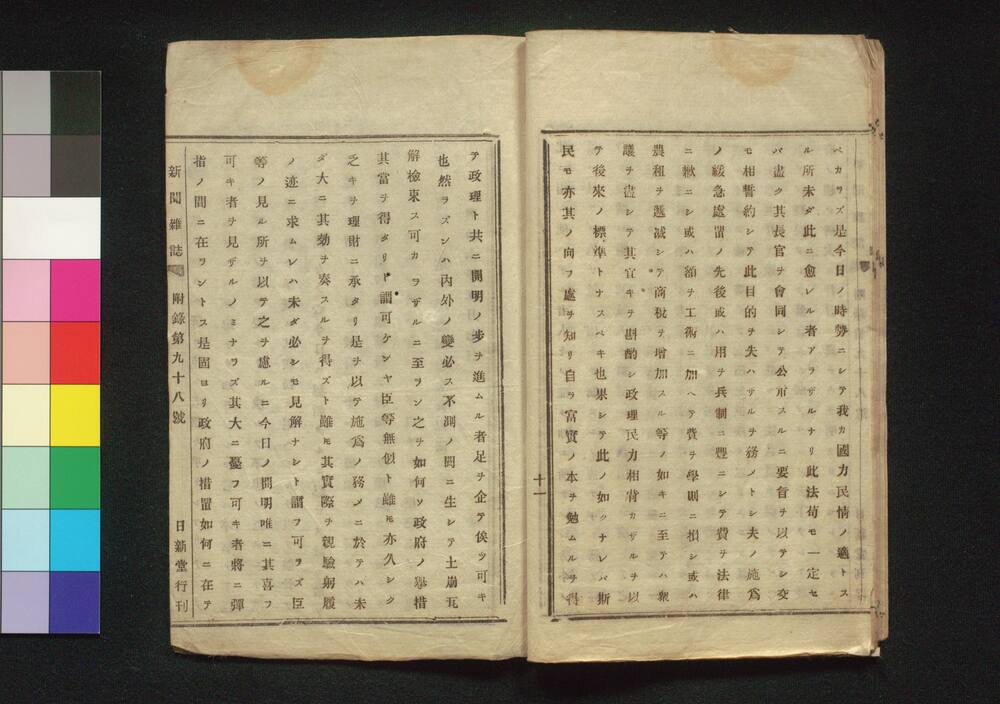 ベカラズ是今日ノ時勢ニシテ我カ國力民情ノ適トス
ル所未ダ此ニ愈レル者アラザルナリ此法苟モ一定セ
バ盡ク其長官ヲ會同シテ公布スルニ要旨ヲ以テシ交
モ相誓約シテ此目的ヲ失ハザルヲ務メトシ夫ノ施爲
ノ緩急處置ノ先後或ハ用ヲ兵制ニ豐ニシテ費ヲ法律
ニ歉ニシ或ハ額ヲ工術ニ加ヘテ費ヲ學則ニ損シ或ハ
農租ヲ遞减シテ商稅ヲ增加スル等ノ如キニ至テハ衆
議ヲ盡シテ其宜キヲ斟酌シ政理民力相背カザルヲ以
テ後來ノ標準トナスベキ也果シテ此ノ如クナレバ斯
民モ亦其ノ向フ處ヲ知リ自ラ富實ノ本ヲ勉ムルヲ得
十一
テ政理ト共ニ開明ノ步ヲ進ムル者足ヲ企テ俟ツ可キ
也然ラズンハ內外ノ變必ス不測ノ間ニ生シテ土崩瓦
解檢束ス可カラザルニ至ラン之ヲ如何ソ政府ノ擧措
其當ヲ得タリト謂可ケンヤ臣等無似ト雖𪜈亦久シク
之キヲ理財ニ承タリ是ヲ以テ施爲ノ務メニ於テハ未
ダ大ニ其効ヲ奏スルヲ得ズト雖𪜈其實際ヲ親驗躬履
ノ迹ニ求ムレハ未ダ必シモ見解ナシト謂フ可ラズ臣
等ノ見ル所ヲ以テ之ヲ慮ルニ今日ノ開明唯ニ其喜フ
可キ者ヲ見ザルノミナラズ其大ニ憂フ可キ者將ニ彈
指ノ間ニ在ラントス是固ヨリ政府ノ措置如何ニ在テ
新聞雜誌 附錄第九十八號 日新堂行刊